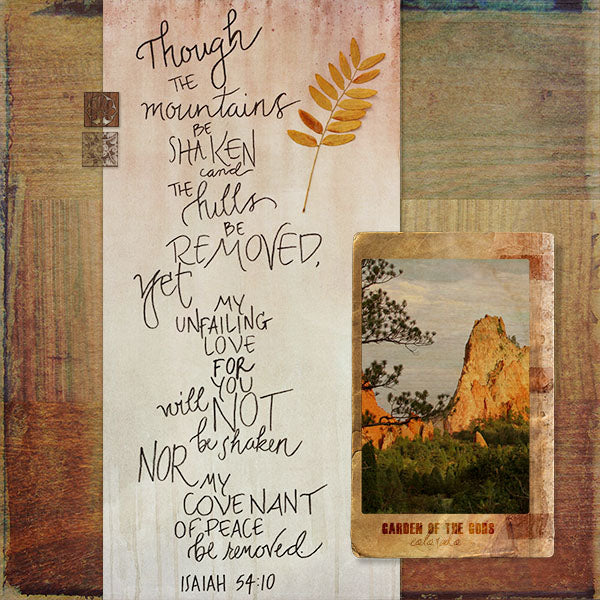 Though
THE
mountains
BE
SHAKEN
and
THE
hills
BE
REMOVED,
yet
MY
UNFAILING
LOVE
FOR
YOU
will NOT
be shaken
NOR
MY
COVENANT
OF PEACE
be removed.
ISAIAH 54:10
GARDEN OF THE GODS
colorado